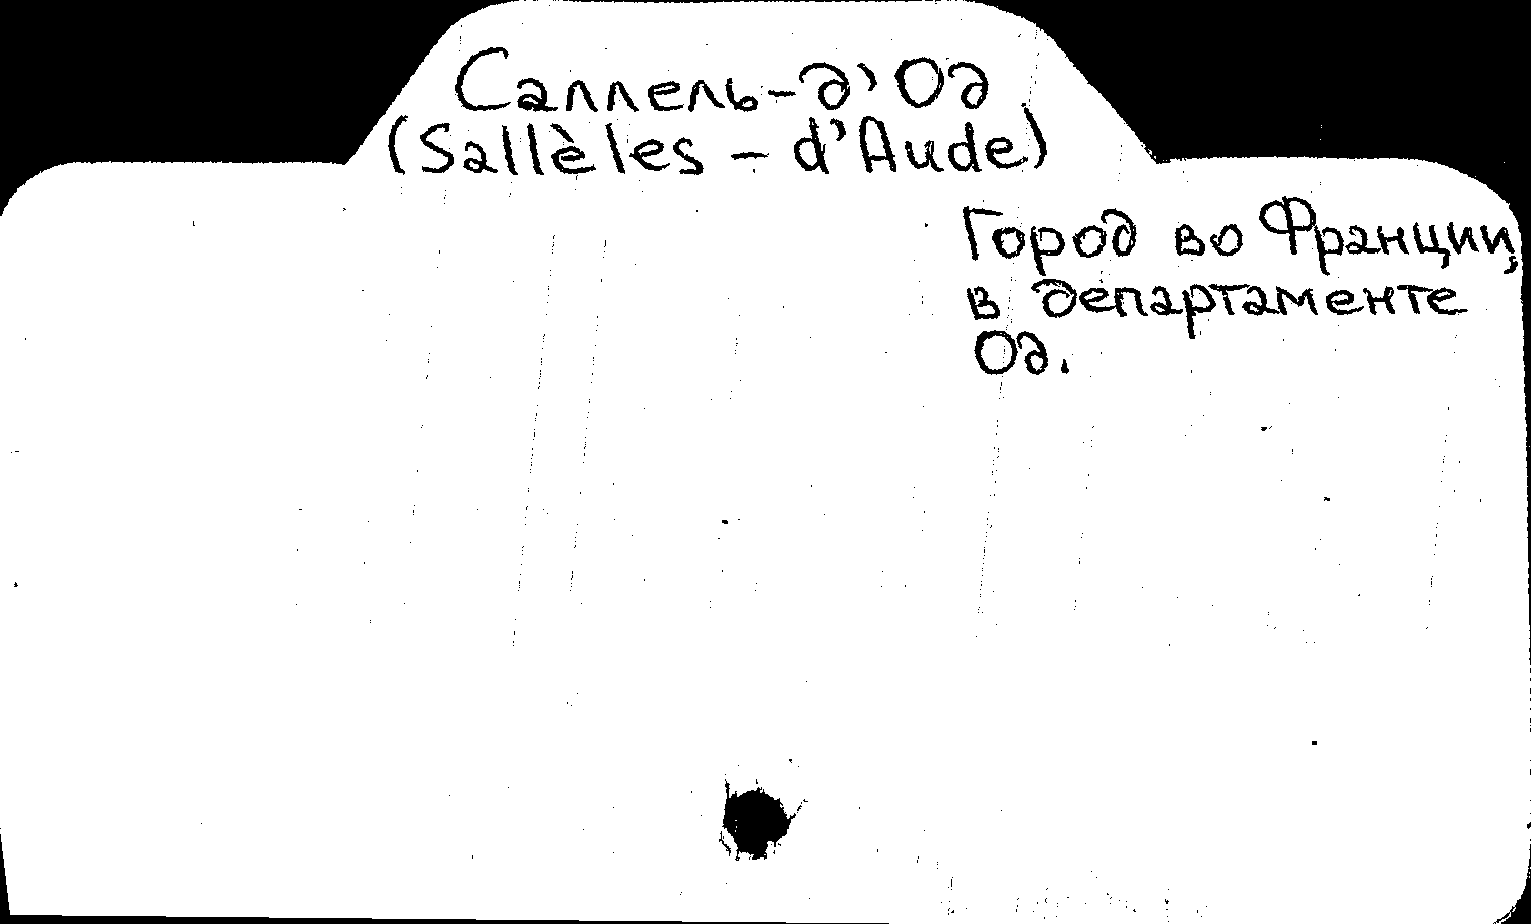 Саллель-д'Од
(Sallèles - d'Aude)
Город во Франции,
в департаменте
Од.